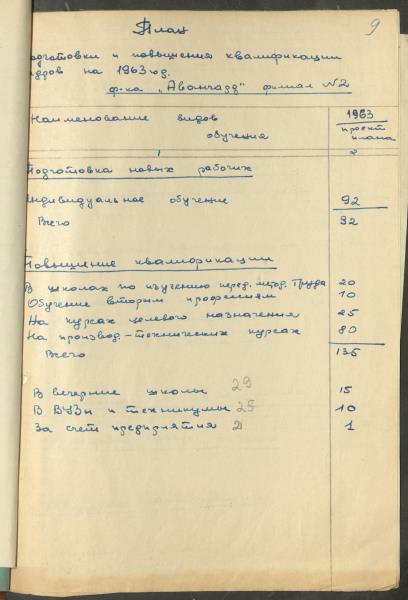 9
План
одготовки и повышения квалификации
адров на 1963 год.
ф-ка „Авангард" филиал N2
Наименование видов обучения
1963 проект плана
1 2
Подготовка новых рабочих
Индивидуальное обучение 92
Всего 92
Повышение квалификации
В школах по изучению перед. метод. труда 20
Обучение вторым профессиям 10
На курсах целевого назначения 25
На производ.-технических курсах 80
Всего 135
В вечерние школы 29 15
В ВУЗы и техникумы 25 10
За счет предприятия 2 1